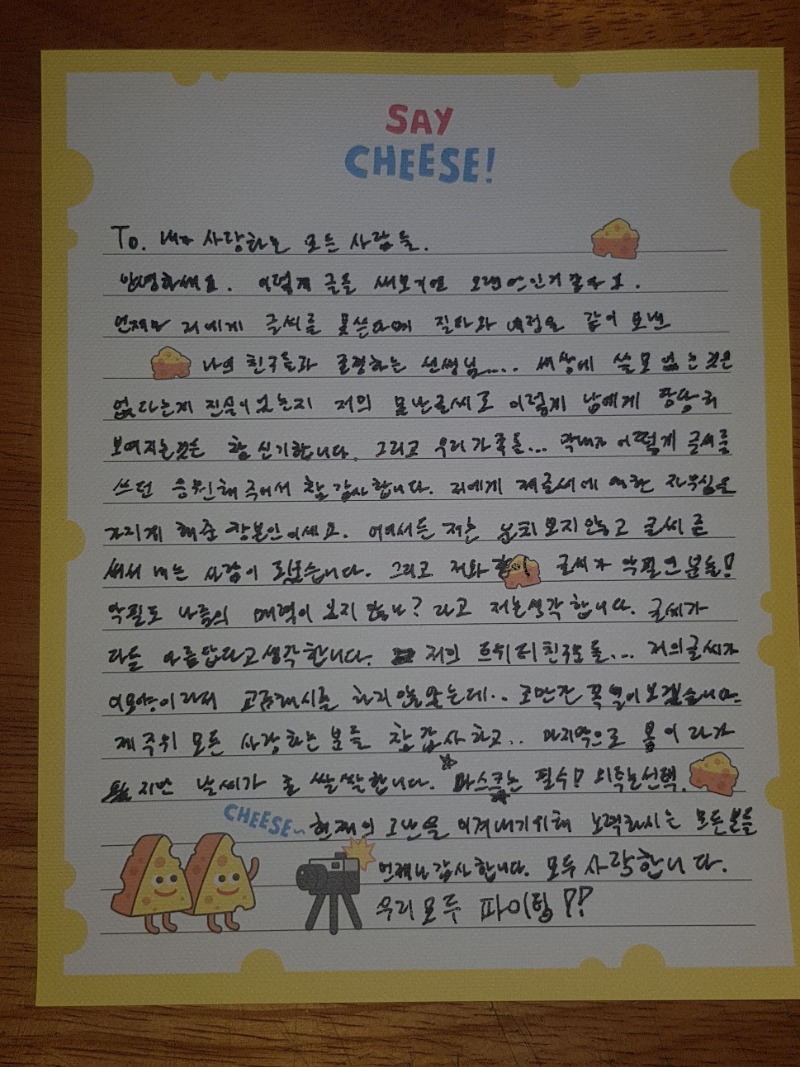 SAY
CHEESE!
To. 내가 사랑하는 모든 사람들.
안녕하세요. 이렇게 글을 써보기엔 오랜만인거 같아요.
언제나 저에게 글씨를 못쓴다며 질타와 애정을 같이 보낸
나의 친구들과 존경하는 선생님.... 세상에 쓸모 없는것은
없다는게 진실이었는지 저의 못난글씨로 이렇게 남에게 당당히
보여지는것은 참 신기합니다. 그리고 우리가족들... 막내가 어떻게 글씨를
쓰던 응원해 주어서 참 감사합니다. 저에게 제글씨에 대한 자부심을
가지게 해준 장본인이세요. 어디서든 저는 눈치 보지 않고 글씨를
써서 내는 사람이 되었습니다. 그리고 저와 글씨가 악필인 분들!
악필도 나름의 매력이 보지 않나? 라고 저는생각 합니다. 글씨가
다들 아름답다고 생각합니다. 저의 트위터친구들... 저의글씨가
이모양이라서 교류해시를 하지 않았는데.. 조만간 꼭 열어보겠습니다.
제 주위 모든 사랑하는 분들 참 감사하고.. 마지막으로 봄이라가
지만 날씨가 좀 쌀쌀합니다. 마스크는 필수! 외투는선택.
CHEESE~ 현재의 고난을 이겨내기위해 노력하시는 모든분들
언제나 감사합니다. 모두 사랑합니다.
우리모두 파이팅!!